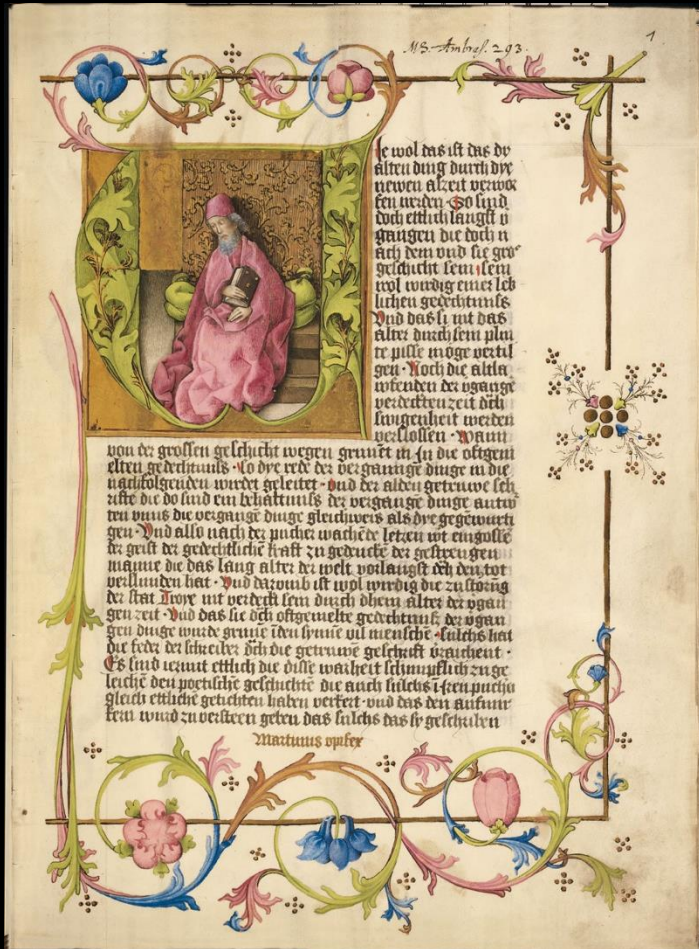 MS. Ambras. 293.
1
Je wol das ist das dy
alten ding durch dye
newen alzeit verwor
fen werden · So sind
doch ettlich langst v̄
gangen die doch n
ach dem vnd sie gros
geschicht sein sein
wol wirdig einer leb
lichen gedechtnuss
Vnd das si nit das
alter durch sein
te pisse möge vertil
gen · Noch die
der vgange
verdeckten zeit dch̄
swigenheit werden
verslossen · Wann
von der grossen geschicht wegen in In die oftgem
elten gedechtnuss · So dye rede der vergannge dinge in die
nachfolgenden wirdet geleitet · vnd der alden getruwe sch
rifte die do sind ein behaltnuss der vergange dinge antw
ten vnns die vergange dinge gleichweis als dye gegewurti
gen · Vnd also nach der pucher wachēde letzen wt eingosse
der geist der gedechtlichē kraft zu gedenckē der gestrengen
manne die das lang alter der welt vorlangst dch̄ den tot
verslunden hat · Vnd darvmb ist wol wirdig die zustorūg
der stat Troye nit verdeckt sein durch dhein alter der vgan
gen zeit · Vnd das sie dch̄ oftgemelte gedechtnuss der vgan
gen dinge wurde īden synne vil menschē · sulchs hat
die feder der schreiber dch̄ die getruwē geschrift
Es sind iemit ettlich die disse warheit schimpflich zuge
leichē den poetischē geschichtē die auch sulchs puchn̄
gleich ettlichē getichten haben verkert · vnd das den
kern wird zu versteen geben das sulchs das sy geschriben
Martinus opifex